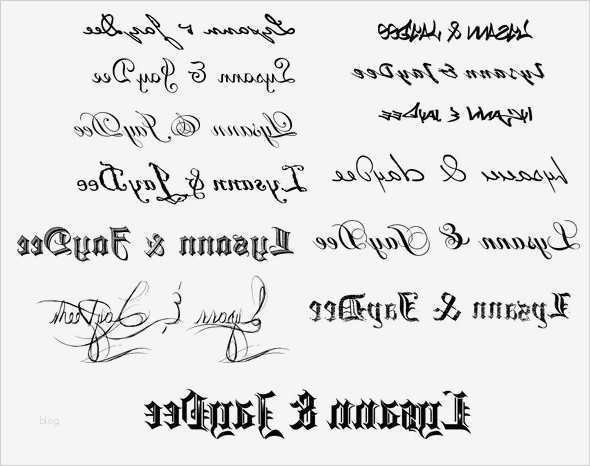 Lysann & JayDee
Lysann & JayDee
Lysann & JayDee
Lysann & JayDee
Lysann & JayDee
Lysann &
LYSANN & JAYDEE
Lysann & JayDee
LYSANN & JAYDEE
Lysann & JayDee
Lysann & JayDee
Lysann & JayDee
Lysann & JayDee
blog